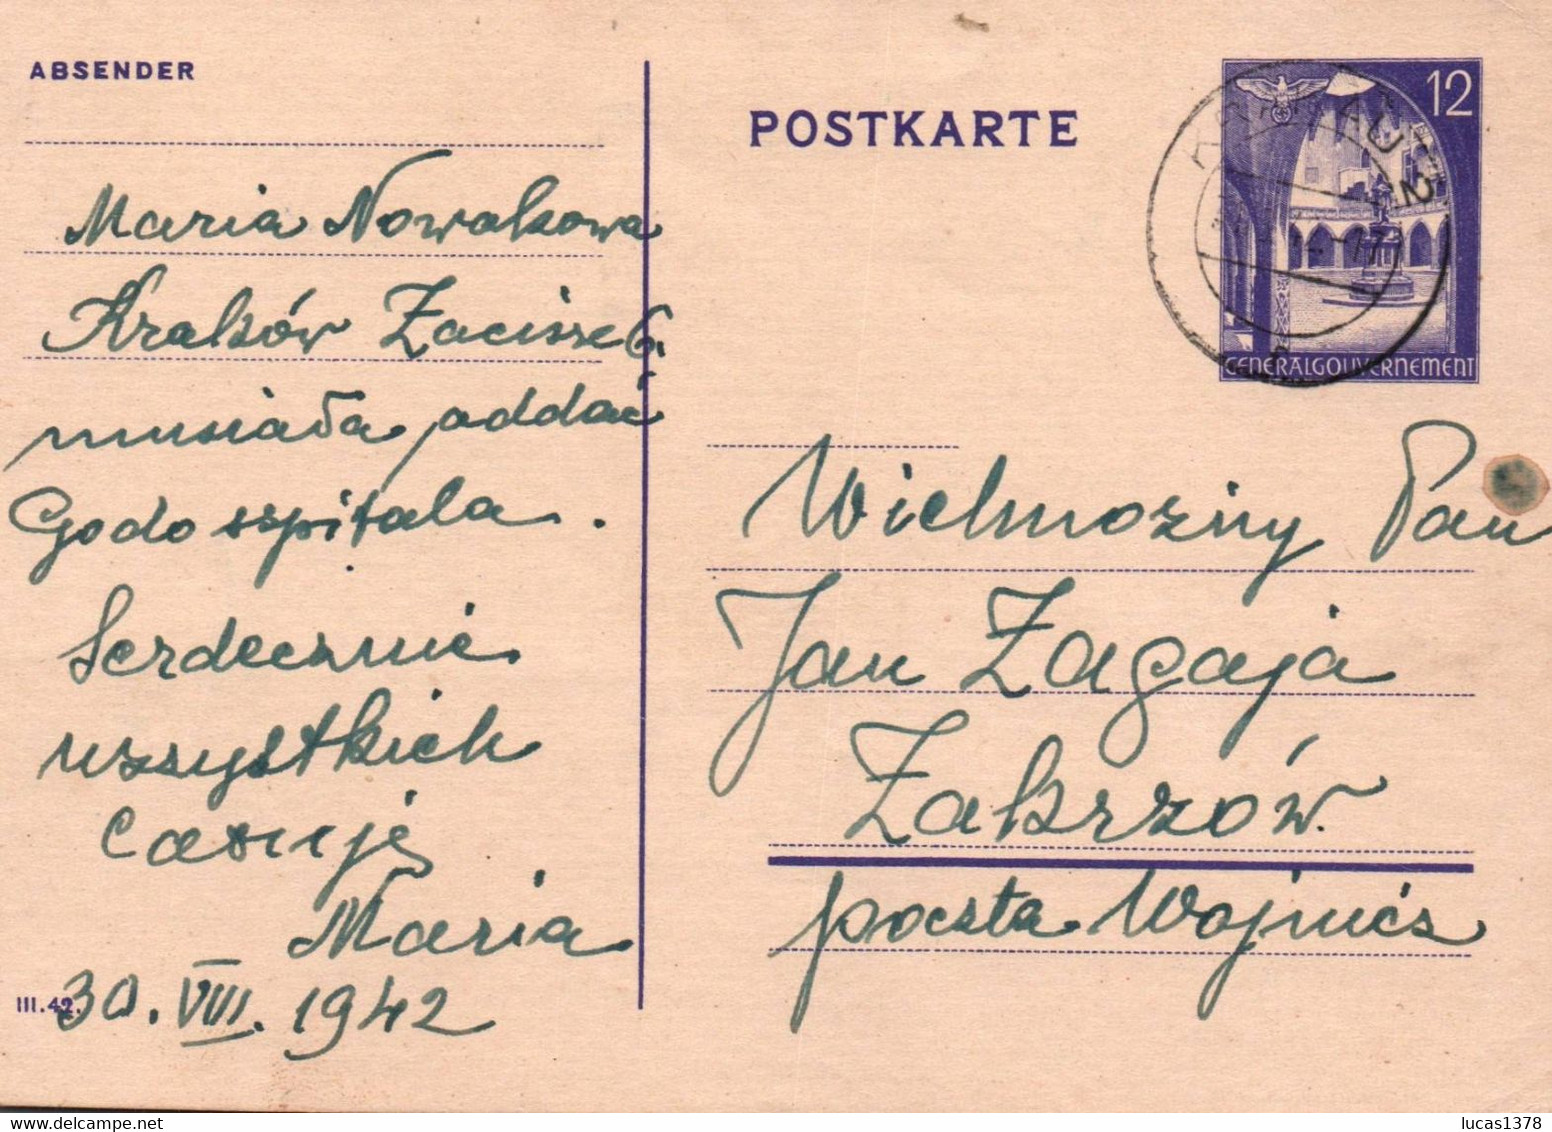 ABSENDER
Maria Nowakowa
Kraków Zacisze 6.
musiała oddać
Go do szpitala.
Serdecznie
wszystkich
całuję
Maria
30. VIII. 1942
III.42.
POSTKARTE
12
GENERALGOUVERNEMENT
KRAKAU 2
Wielmożny Pan
Jan Zagaja
Zakrzów
poczta Wojnicz
lucas1378